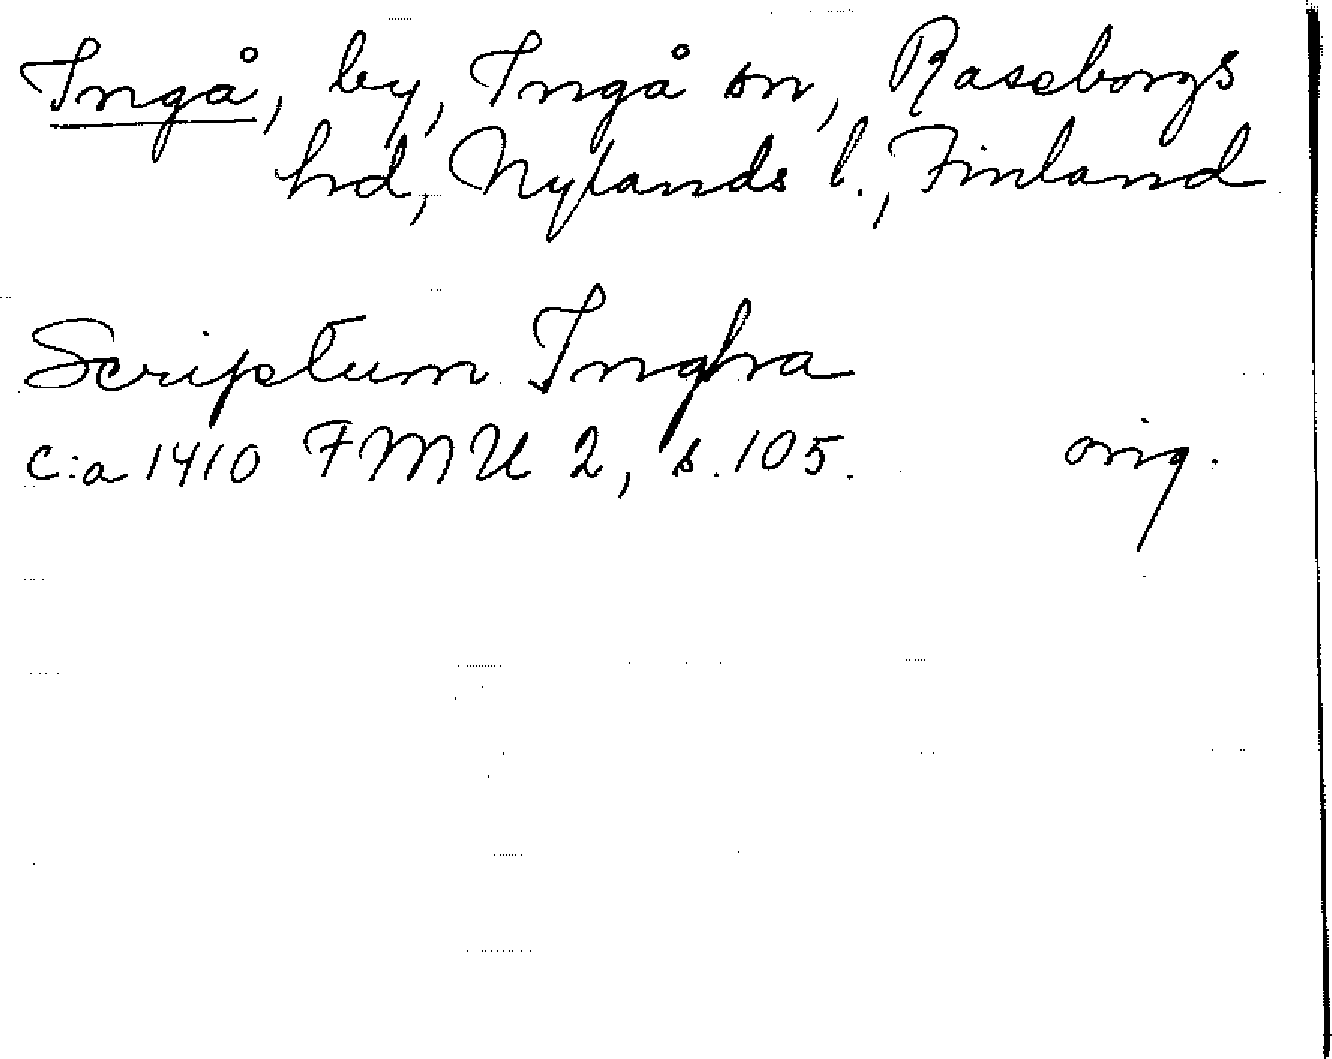 Ingå, by, Ingå sn, Raseborgs
hd, Nylands l., Finland
Scriptum Inghra
c:a 1410 FMU 2, s. 105. orig.